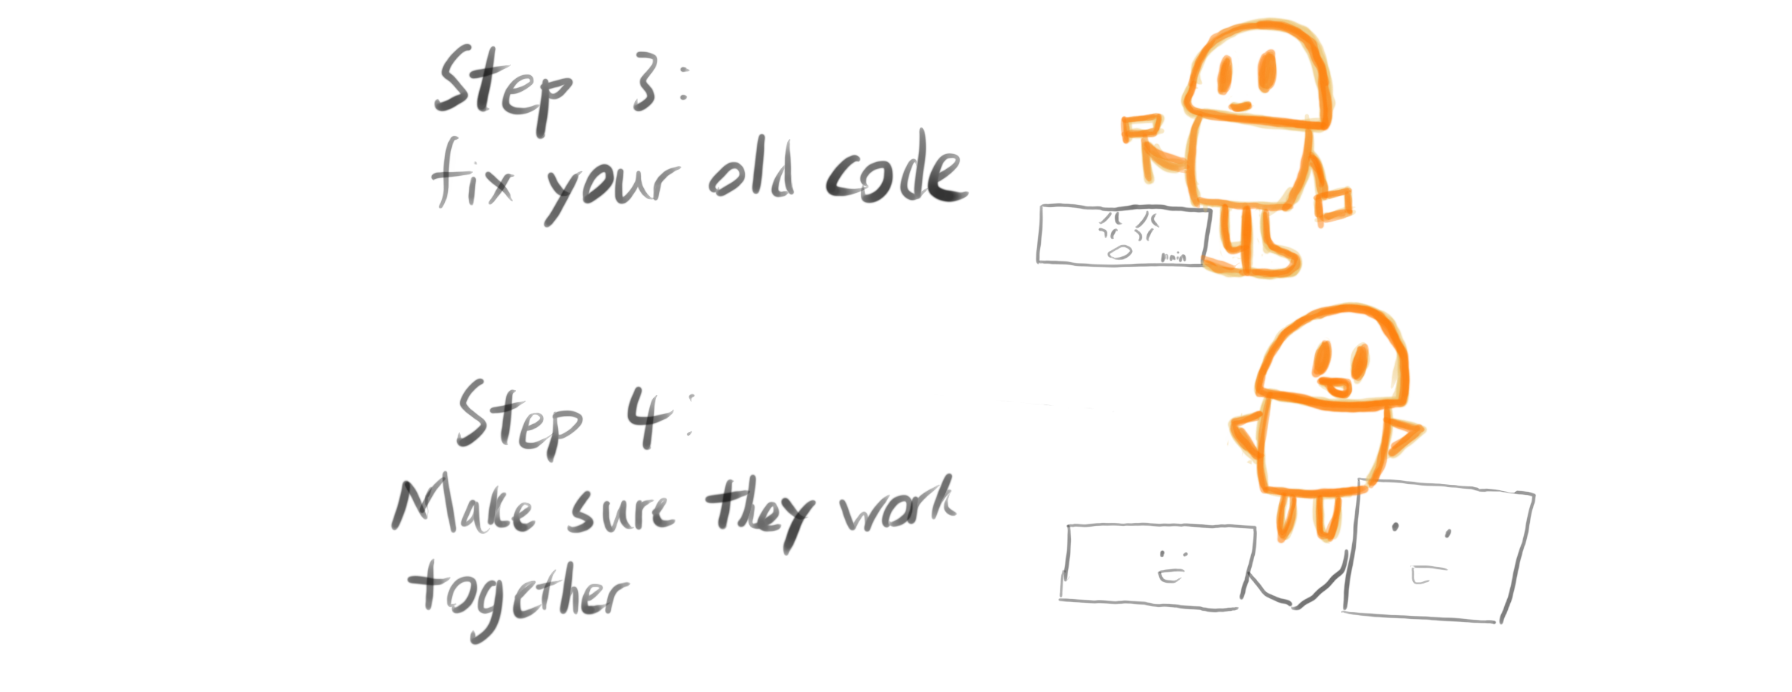 Step 3:
fix your old code
main
Step 4:
Make sure they work
together